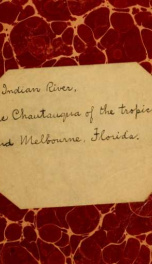 Indian River,
e Chautauqua of the tropic
nd Melbourne, Florida.